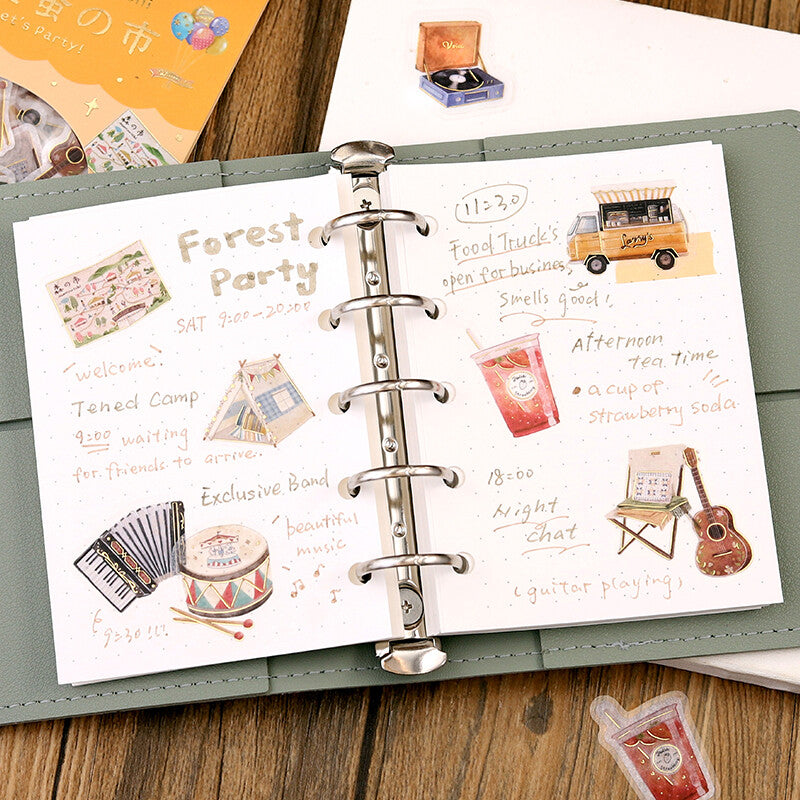 蚤の市
Let's Party!
Forest
Party
SAT 9:00-20:00
welcome
Tened Camp
9:00 waiting
for friends to arrive.
Exclusive Band
beautiful
music
9:30 !!!
11:30
Food Truck's
open for busines,
Smells good!
Lamy's
Afternoon
tea time
• a cup of
strawberry soda
18:00
Night
chat
(guitar playing)